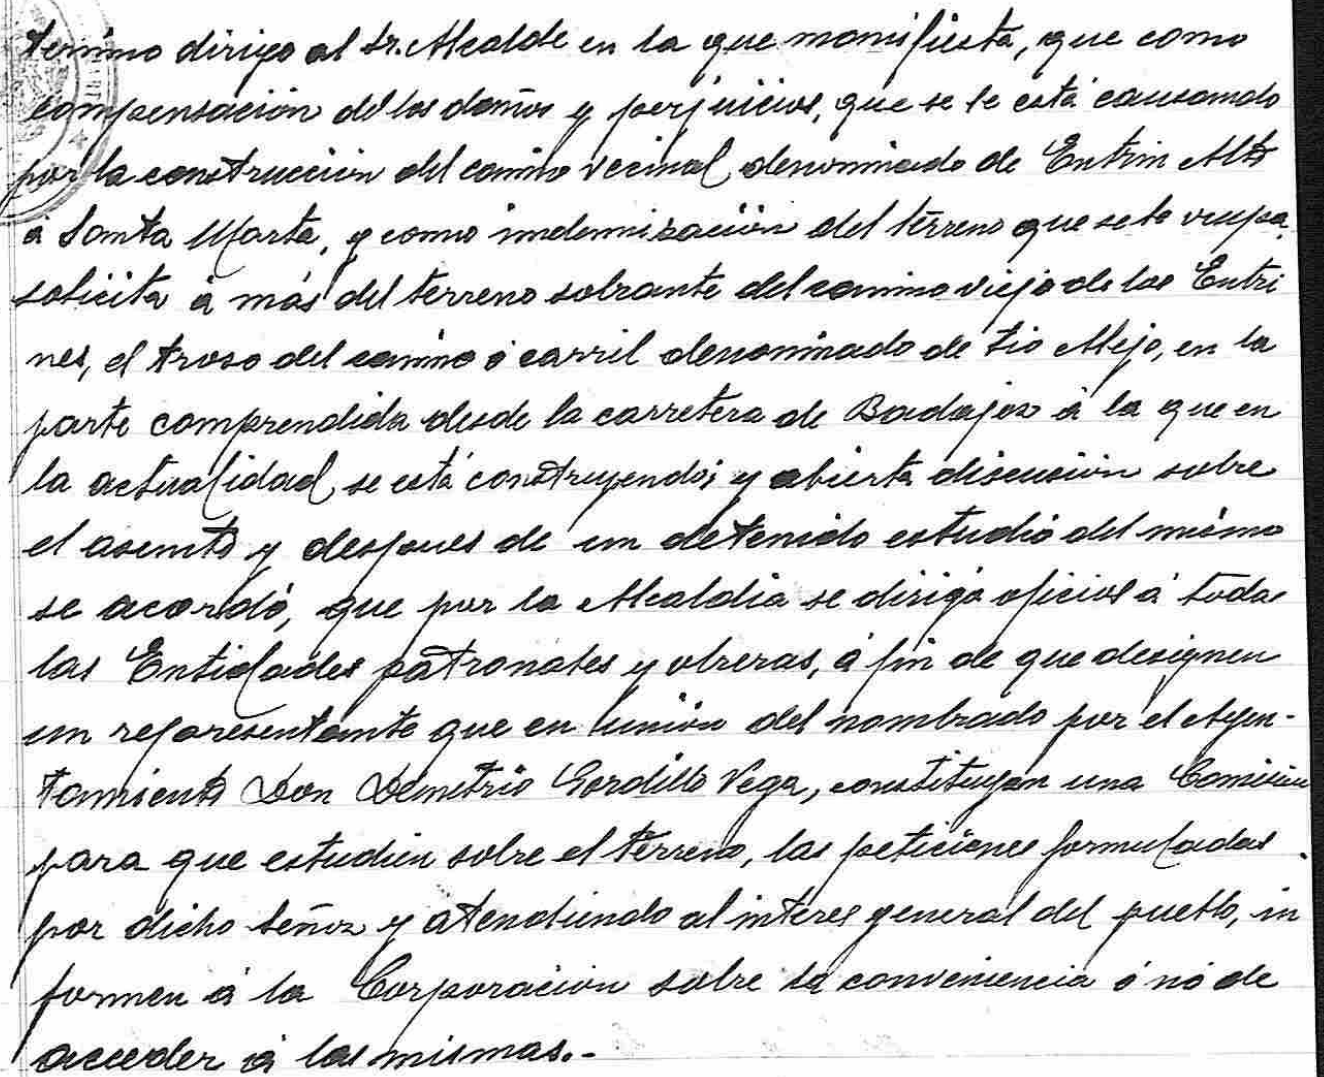 termino dirige al Sr. Alcalde en la que manifiesta, que como
compensación de los daños y perjuicios, que se le está causando
por la construcción del camino vecinal denominado de Entrin Alto
á Santa Marta, y como indemización del terreno que se le ocupa,
solicita á más del terreno sobrante del camino viejo de los Entri
nes, el troso del camino ó carril denominado de tio Alejo, en la
parte comprendida desde la carretera de Badajoz á la que en
la actualidad se está construyendo; y abierta discusión sobre
el asunto y despues de un detenido estudio del mismo
se acordó, que por la Alcaldia se diriga oficios á todas
las Entidades patronales y obreras, á fin de que designen
un representante que en unión del nombrado por el Ayun-
tamiento Don Demetrio Gordillo Vega, constituyan una Comisión
para que estudien sobre el terreno, las peticiones formuladas
por dicho señor y atendiendo al interes general del pueblo, in
formen á la Corporación sobre la conveniencia ó nó de
acceder á las mismas.-